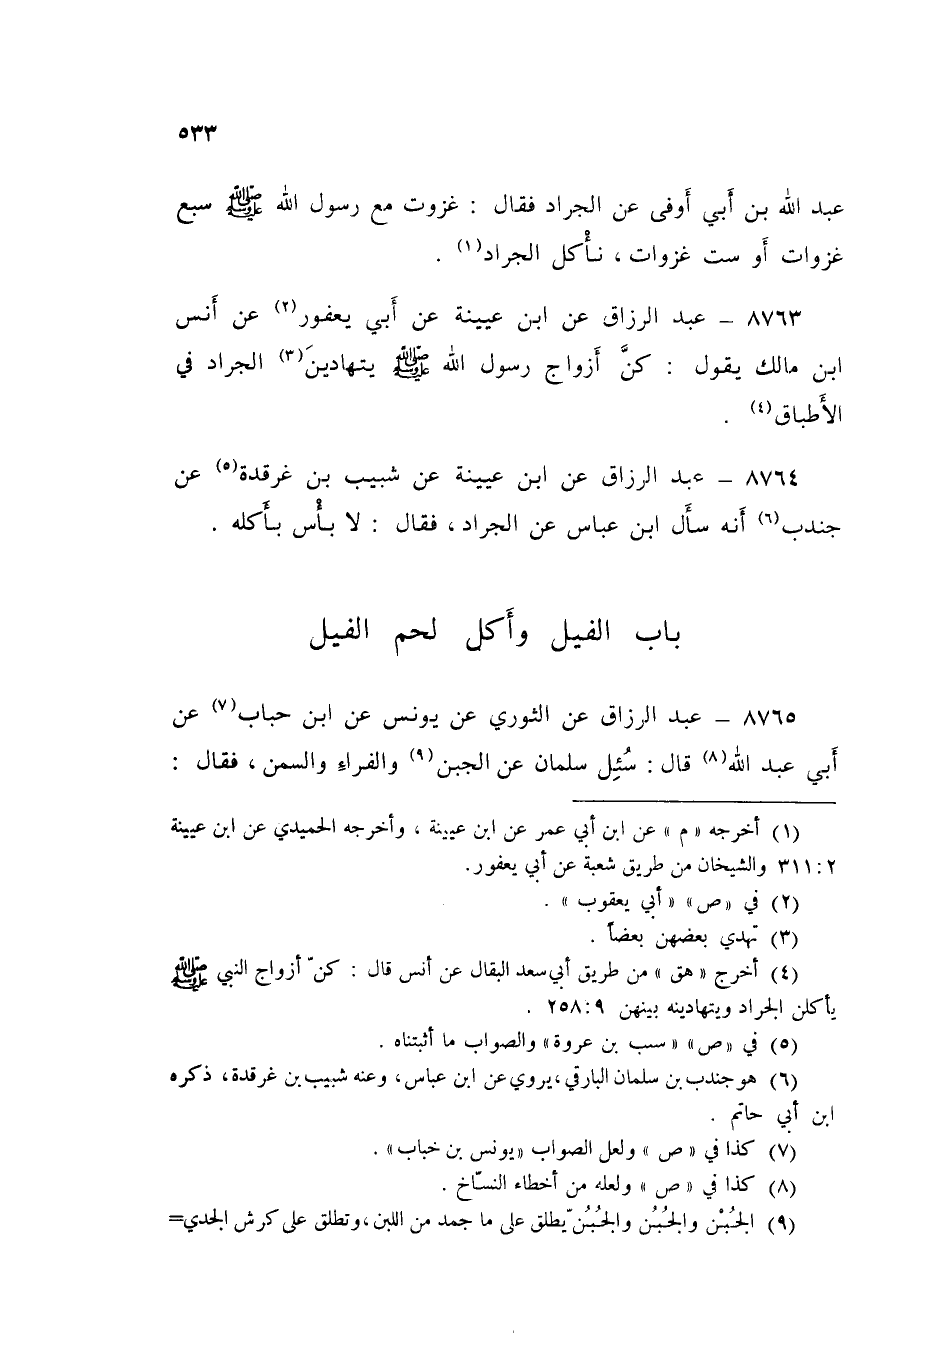 ٥٣٣
عبد الله بن أَبي أَوفى عن الجراد فقال : غزوت مع رسول الله ﷺ سبع
غزوات أَو ست غزوات ، نأْكل الجراد(١) .
٨٧٦٣ – عبد الرزاق عن ابن عيينة عن أَبي يعفور(٢) عن أَنس
ابن مالك يقول : كنَّ أَزواج رسول الله ﷺ يتهادينَ(٣) الجراد في
الأَطباق(٤) .
٨٧٦٤ – عبد الرزاق عن ابن عيينة عن شبيب بن غرقدة(٥) عن
جندب(٦) أَنه سأَل ابن عباس عن الجراد ، فقال : لا بأْس بأَكله .
باب الفيل وأَكل لحم الفيل
٨٧٦٥ – عبد الرزاق عن الثوري عن يونس عن ابن حباب(٧) عن
أَبي عبد الله(٨) قال : سُئِل سلمان عن الجبن(٩) والفراءِ والسمن ، فقال :
(١) أخرجه « م » عن ابن أبي عمر عن ابن عيينة ، وأخرجه الحميدي عن ابن عيينة
٢ : ٣١١ والشيخان من طريق شعبة عن أبي يعفور.
(٢) في «ص» «أبي يعقوب » .
(٣) تهدي بعضهن بعضاً .
(٤) أخرج « هق » من طريق أبي سعد البقال عن أنس قال : كنّ أزواج النبي ﷺ
يأكلن الجراد ويتهادينه بينهن ٩ : ٢٥٨ .
(٥) في «ص» «سب بن عروة» والصواب ما أثبتناه .
(٦) هو جندب بن سلمان البارقي ، يروي عن ابن عباس ، وعنه شبيب بن غرقدة ، ذكره
ابن أبي حاتم .
(٧) كذا في « ص » ولعل الصواب «يونس بن خباب» .
(٨) كذا في « ص » ولعله من أخطاء النسّاخ .
(٩) الجُبْن والجُبُن والجُبُنّ يطلق على ما جمد من اللبن ، وتطلق على كرش الجدي=